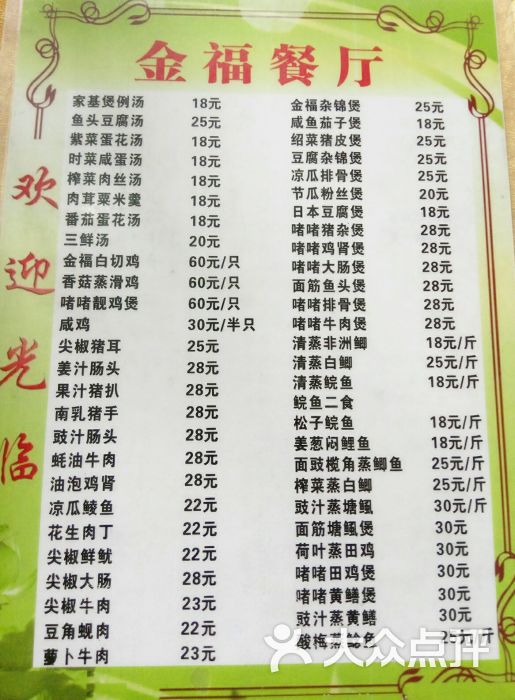 金福餐厅
欢迎光临
家基煲例汤 18元
鱼头豆腐汤 25元
紫菜蛋花汤 18元
时菜咸蛋汤 18元
榨菜肉丝汤 18元
肉茸粟米羹 18元
番茄蛋花汤 18元
三鲜汤 20元
金福白切鸡 60元/只
香菇蒸滑鸡 60元/只
啫啫靓鸡煲 60元/只
咸鸡 30元/半只
尖椒猪耳 25元
姜汁肠头 28元
果汁猪扒 28元
南乳猪手 28元
豉汁肠头 28元
蚝油牛肉 28元
油泡鸡肾 28元
凉瓜鲮鱼 22元
花生肉丁 22元
尖椒鲜鱿 22元
尖椒大肠 28元
尖椒牛肉 23元
豆角蚬肉 22元
萝卜牛肉 23元
金福杂锦煲 25元
咸鱼茄子煲 18元
绍菜猪皮煲 25元
豆腐杂锦煲 25元
凉瓜排骨煲 25元
节瓜粉丝煲 20元
日本豆腐煲 18元
啫啫猪杂煲 28元
啫啫鸡肾煲 28元
啫啫大肠煲 28元
面筋鱼头煲 28元
啫啫排骨煲 28元
啫啫牛肉煲 28元
清蒸非洲鲫 18元/斤
清蒸白鲫 25元/斤
清蒸鲩鱼 18元/斤
鲩鱼二食
松子鲩鱼 18元/斤
姜葱闷鲤鱼 18元/斤
面豉榄角蒸鲫鱼 25元/斤
榨菜蒸白鲫 25元/斤
豉汁蒸塘鲺 30元/斤
面筋塘鲺煲 30元
荷叶蒸田鸡 30元
啫啫田鸡煲 30元
啫啫黄鳝煲 30元
豉汁蒸黄鳝 30元
酸梅蒸鲶鱼 25元/斤
大众点评